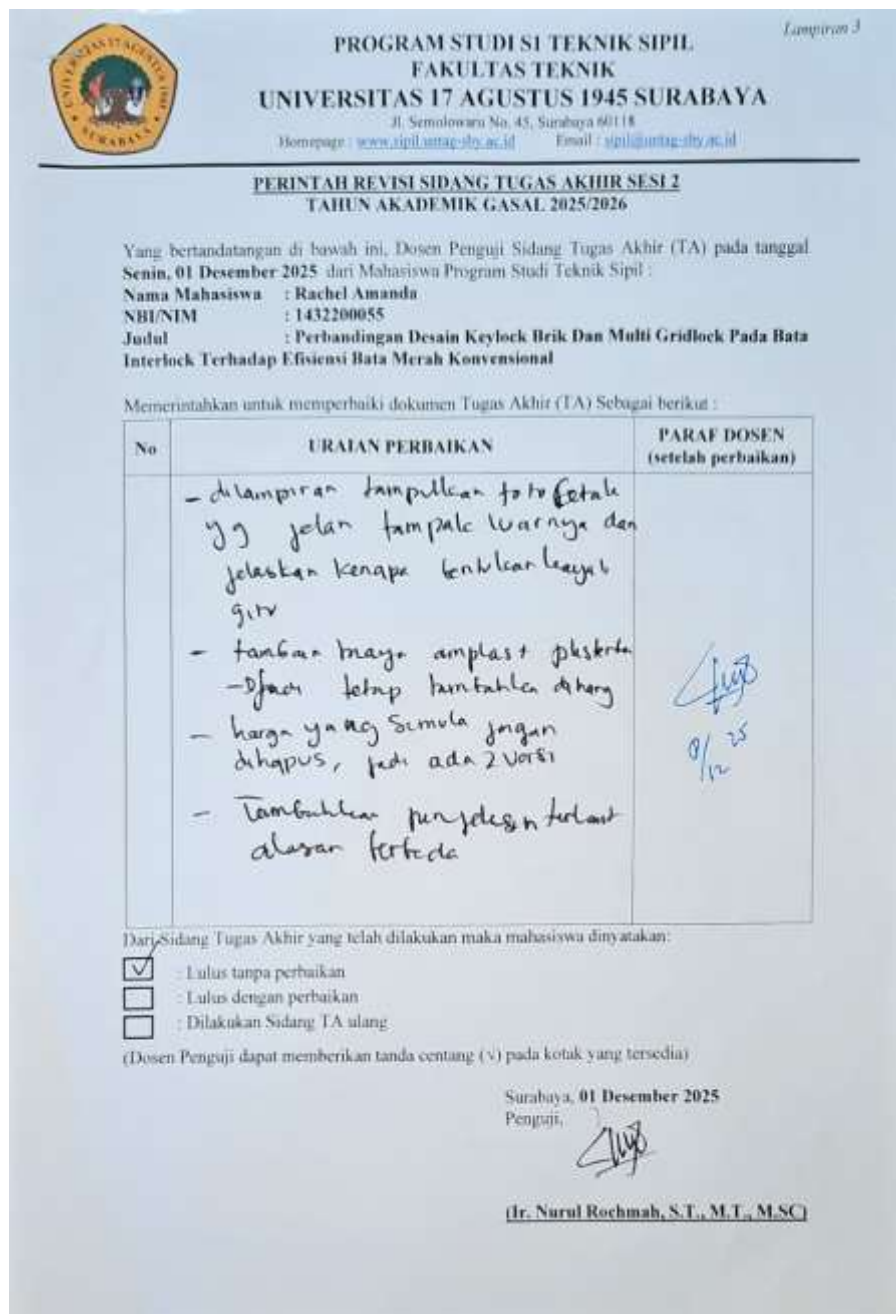 Lampiran 3
PROGRAM STUDI S1 TEKNIK SIPIL
FAKULTAS TEKNIK
UNIVERSITAS 17 AGUSTUS 1945 SURABAYA
Jl. Semolowaru No. 45, Surabaya 60118
Homepage : www.sipil.untag-sby.ac.id Email : sipil@untag-sby.ac.id
UNIVERSITAS 17 AGUSTUS 1945
SURABAYA
PERINTAH REVISI SIDANG TUGAS AKHIR SESI 2
TAHUN AKADEMIK GASAL 2025/2026
Yang bertandatangan di bawah ini, Dosen Penguji Sidang Tugas Akhir (TA) pada tanggal
Senin, 01 Desember 2025 dari Mahasiswa Program Studi Teknik Sipil :
Nama Mahasiswa : Rachel Amanda
NBI/NIM : 1432200055
Judul : Perbandingan Desain Keylock Brik Dan Multi Gridlock Pada Bata
Interlock Terhadap Efisiensi Bata Merah Konvensional
Memerintahkan untuk memperbaiki dokumen Tugas Akhir (TA) Sebagai berikut :
No URAIAN PERBAIKAN PARAF DOSEN
(setelah perbaikan)
- dilampiran tampilkan foto
yg jelan tampak luarnya dan
jelaskan kenapa
gitu
-
- tetap
- harga yang semula jangan
dihapus, jadi ada 2 versi
- Tambahkan
alasan berbeda
8/12 25
Dari Sidang Tugas Akhir yang telah dilakukan maka mahasiswa dinyatakan:
: Lulus tanpa perbaikan
: Lulus dengan perbaikan
: Dilakukan Sidang TA ulang
(Dosen Penguji dapat memberikan tanda centang (√) pada kotak yang tersedia)
Surabaya, 01 Desember 2025
Penguji,
(Ir. Nurul Rochmah, S.T., M.T., M.SC)